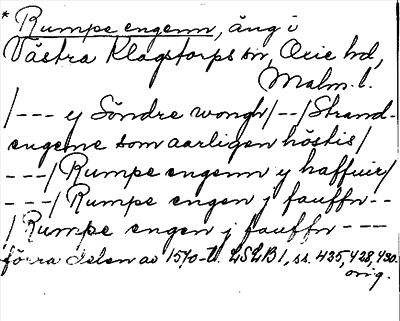 * Rumpe engenn, äng i
Västra Klagstorps sn, Oxie hd,
Malm. l.
/--- ej Söndre wongh/--/Strand-
engene som aarligen höstis/
---/Rumpe engenn y haffuir/
---/Rumpe engen j fauffn--
/Rumpe engen j fauffn ---
förra delen av 1570-t. LSLB 1, ss. 425, 428, 430.
orig.